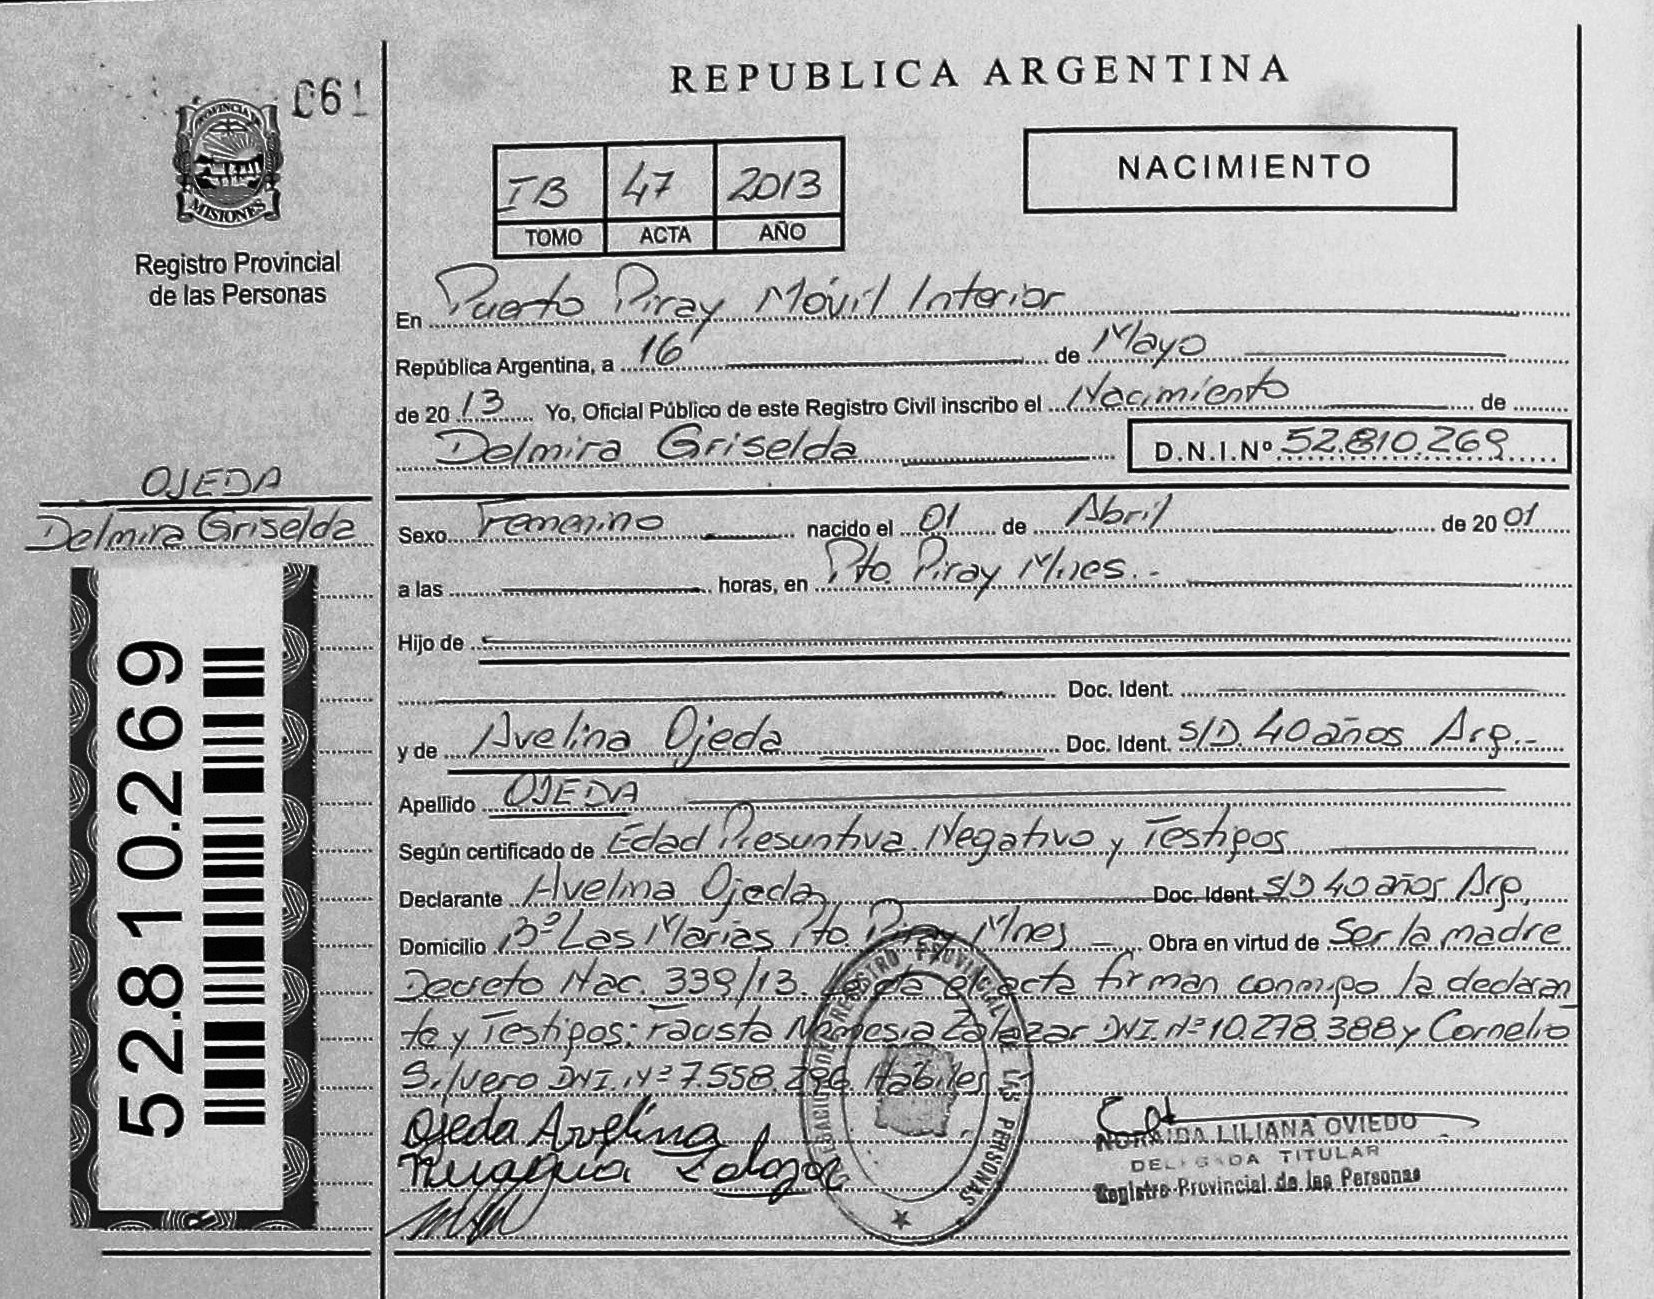 REPUBLICA ARGENTINA
061
PROVINCIA DE
MISIONES
Registro Provincial
de las Personas
NACIMIENTO
IB 47 2013
TOMO ACTA AÑO
En Puerto Piray Móvil Interior
República Argentina, a 16 de Mayo
de 2013 Yo, Oficial Público de este Registro Civil inscribo el Nacimiento de
Delmira Griselda D.N.I.Nº 52.810.269
OJEDA
Delmira Griselda
52.810.269
Sexo Femenino nacido el 01 de Abril de 2001
a las horas, en Pto. Piray Mnes.-
Hijo de
Doc. Ident.
y de Avelina Ojeda Doc. Ident. S/D. 40 años Arg.-
Apellido OJEDA
Según certificado de Edad Presuntiva Negativo y Testigos
Declarante Avelina Ojeda Doc. Ident. S/D 40 años Arg.
Domicilio Bº Las Marías Pto Piray Mnes Obra en virtud de Ser la madre
Decreto Nac. 339/13. Leída el acta firman conmigo la declaran
te y Testigos: Fausta Nemesia Zalazar DNI. Nº 10.278.388 y Cornelio
Silvero DNI. Nº 7.558.296. Hábiles
Ojeda Avelina
Zalazar
REGISTRO PROVINCIAL DE LAS PERSONAS
NORAIDA LILIANA OVIEDO
DELEGADA TITULAR
Registro Provincial de las Personas